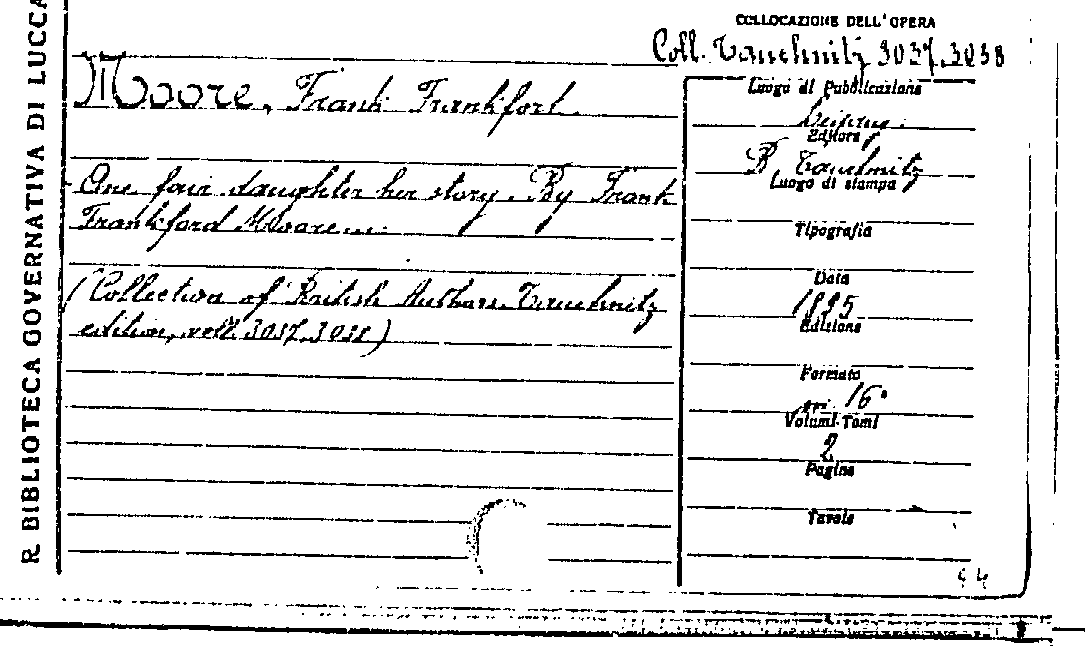 R. BIBLIOTECA GOVERNATIVA DI LUCCA
COLLOCAZIONE DELL'OPERA
Coll. Tauchnitz 3037.3038
Moore, Frank Frankfort.
One fair daughter her story. By Frank
Frankford Moore....
(Collection of British Authors. Tauchnitz
edition, voll. 3037.3038)
Luogo di Pubblicazione
Leipzig.
Editore
B. Tauchnitz
Luogo di stampa
Tipografia
Data
1895
Edizione
Formato
16°
Volumi-Tomi
2
Pagine
Tavole